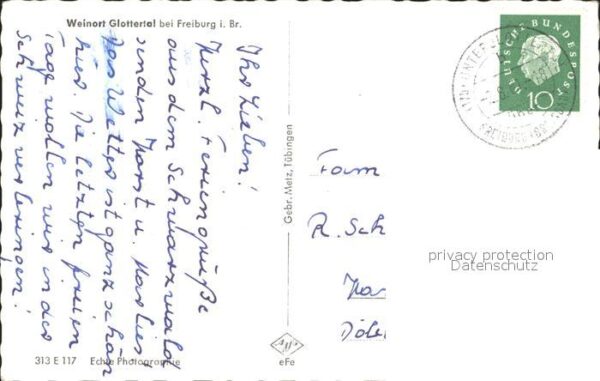 Weinort Glottertal bei Freiburg i. Br.
Ihr Lieben!
Herzl. Feriengrüße
aus dem Schwarzwald
senden Horst u. Marlies
Das Wetter ist ganz schön
hier. Die letzten freien
Tage wollen wir in der
Schweiz verbringen!
313 E 117 Echte Photographie
Gebr. Metz, Tübingen
eFe
DEUTSCHE BUNDESPOST
10
Fam
R. Sch
privacy protection
Datenschutz